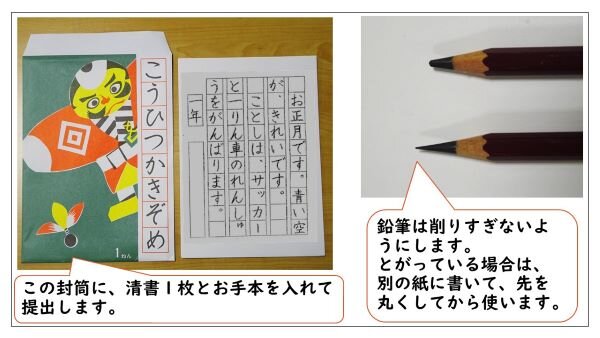 こうひつかきぞめ
1ねん
お正月です。青い空
が、きれいです。
ことしは、サッカー
と一りん車のれんしゅ
うをがんばります。
一年
この封筒に、清書１枚とお手本を入れて
提出します。
鉛筆は削りすぎないよ
うにします。
とがっている場合は、
別の紙に書いて、先を
丸くしてから使います。